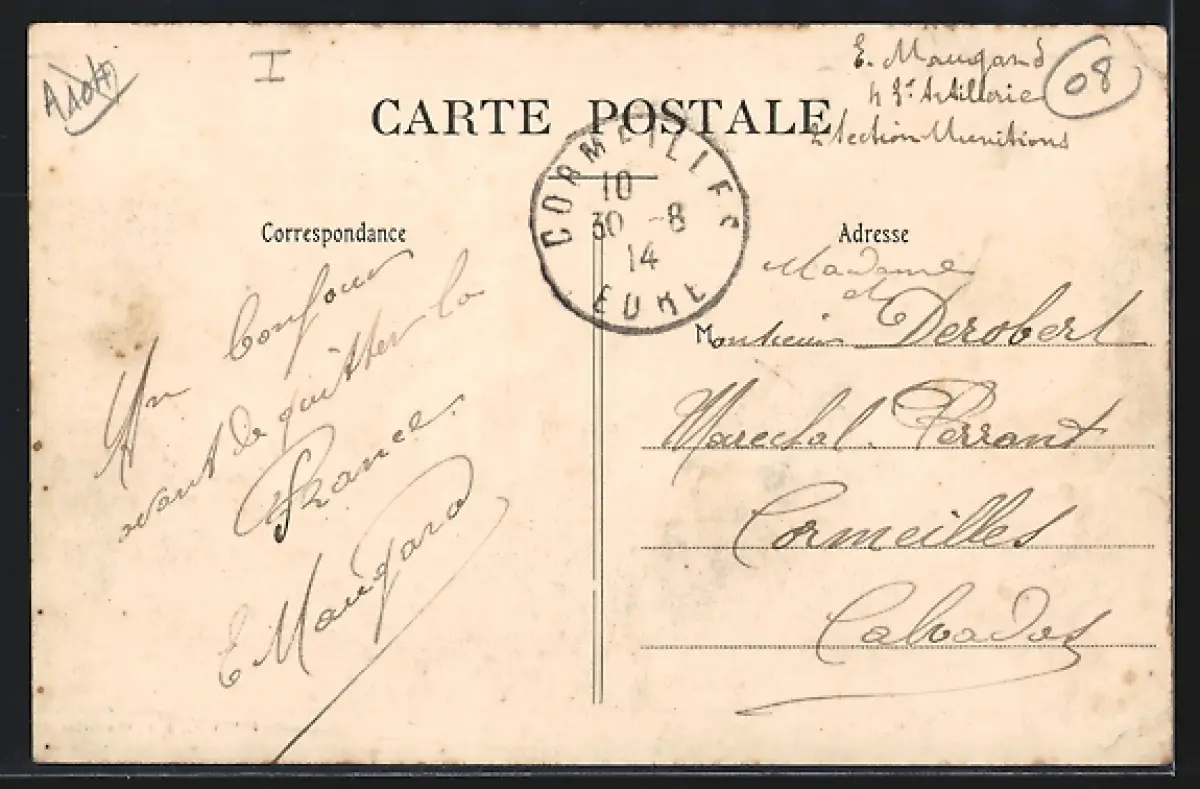 I
E. Maugard
08
Artillerie
Section Munitions
CARTE POSTALE
CORMEILLES
10
30 -8
14
EURE
Correspondance
Adresse
Un bonjour
avant de quitter la
France.
E Maugard
Madame
et
Monsieur Derobert
Marechal. Ferrant
Cormeilles
Calvados